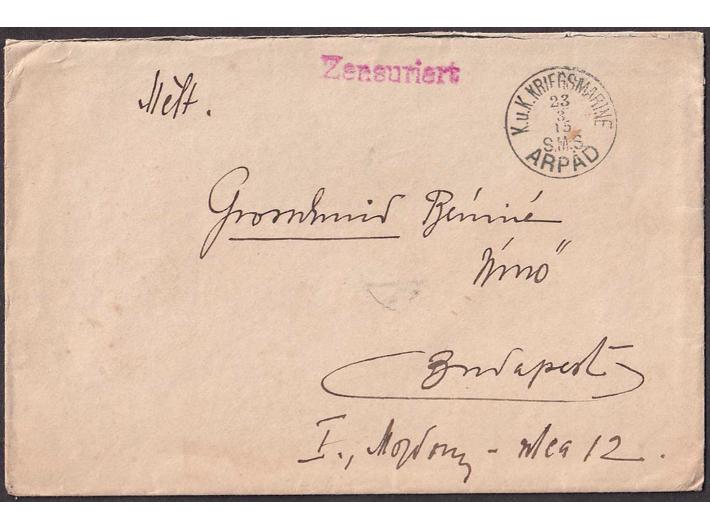 Zensuriert
K.u.K. KRIEGSMARINE
23
3
15
S.M.S.
ÁRPÁD
Mélt.
Grosschmid Béniné
Úrnő
Budapest
I., utca 12.